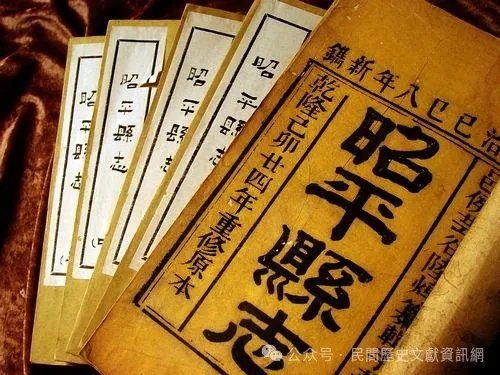 治己巳八年新鐫
邑侯
陸
纂輯
昭平縣志
乾隆己卯廿四年重修原本
昭平縣志
昭平縣志
昭平縣志
昭平縣志
公众号 · 民間歷史文獻資訊網